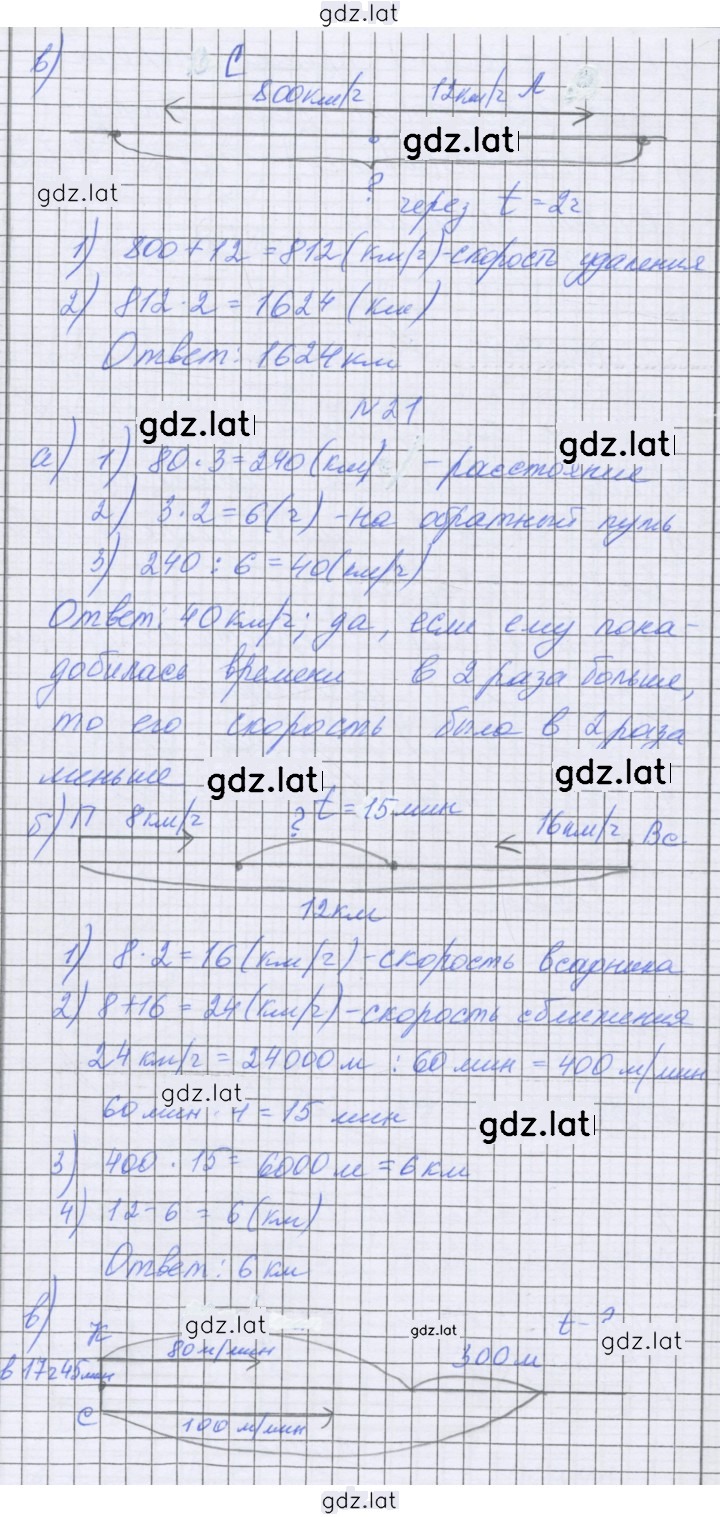 gdz.lat
в)
С
800км/ч 12км/ч А
gdz.lat
gdz.lat
?
через t = 2ч
1) 800 + 12 = 812 (км/ч) - скорость удаления
2) 812 · 2 = 1624 (км)
Ответ: 1624 км
N 21
gdz.lat
gdz.lat
а) 1) 80 · 3 = 240 (км) - расстояние
2) 3 · 2 = 6 (ч) - на обратный путь
3) 240 : 6 = 40 (км/ч)
Ответ: 40 км/ч; да, если ему пона-
добилась времени в 2 раза больше,
то его скорость была в 2 раза
меньше
gdz.lat
gdz.lat
б) П 8км/ч ? t = 15 мин 16км/ч Вс
12 км
1) 8 · 2 = 16 (км/ч) - скорость всадника
2) 8 + 16 = 24 (км/ч) - скорость сближения
24 км/ч = 24000 м : 60 мин = 400 м/мин
gdz.lat
60 мин : 4 = 15 мин
gdz.lat
3) 400 · 15 = 6000 м = 6 км
4) 12 - 6 = 6 (км)
Ответ: 6 км
в)
К
gdz.lat
gdz.lat
t - ?
gdz.lat
80 м/мин
300 м
в 17ч45мин
С
100 м/мин
gdz.lat